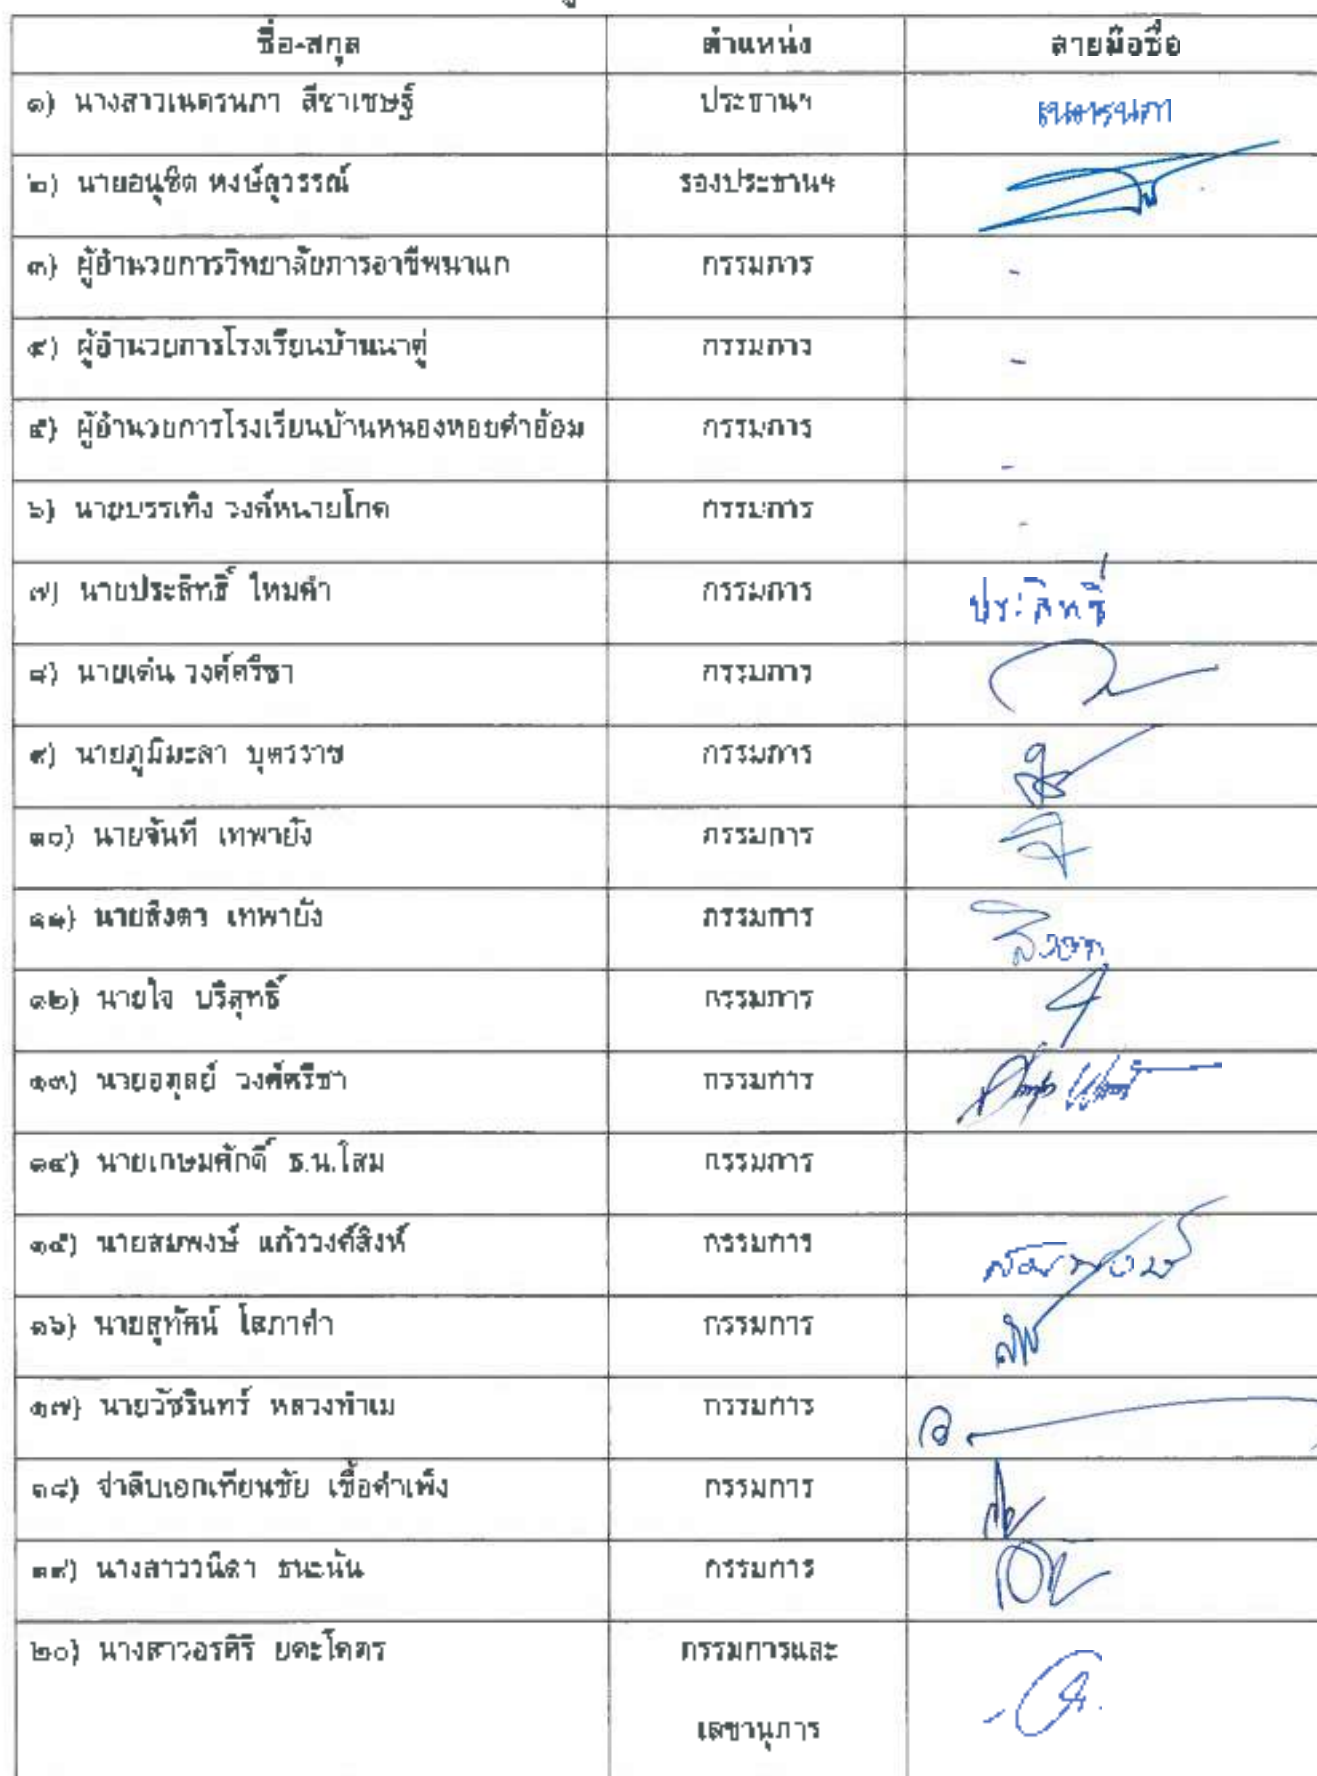 ชื่อ-สกุล ตำแหน่ง ลายมือชื่อ
๑) นางสาวเนตรนภา สีชาเชษฐ์ ประธานฯ เนตรนภา
๒) นายอนุชิต หงษ์สุวรรณ์ รองประธานฯ
๓) ผู้อำนวยการวิทยาลัยการอาชีพนาแก กรรมการ -
๔) ผู้อำนวยการโรงเรียนบ้านนาคู่ กรรมการ -
๕) ผู้อำนวยการโรงเรียนบ้านหนองหอยคำอ้อม กรรมการ -
๖) นายบรรเทิง วงค์หนายโกด กรรมการ -
๗) นายประสิทธิ์ ไหมคำ กรรมการ ประสิทธิ์
๘) นายเด่น วงค์ศรีชา กรรมการ
๙) นายภูมิมะลา บุตรราช กรรมการ
๑๐) นายจันที เทพายัง กรรมการ
๑๑) นายสิงดา เทพายัง กรรมการ
๑๒) นายใจ บริสุทธิ์ กรรมการ
๑๓) นายอดุลย์ วงค์ศรีชา กรรมการ
๑๔) นายเกษมศักดิ์ ธ.น.โสม กรรมการ
๑๕) นายสมพงษ์ แก้ววงค์สิงห์ กรรมการ สมพงษ์
๑๖) นายสุทัศน์ โสภาคำ กรรมการ
๑๗) นายวัชรินทร์ หลวงทำเม กรรมการ
๑๘) จ่าสิบเอกเทียนชัย เชื้อคำเพ็ง กรรมการ
๑๙) นางสาววนิดา ธนะนัน กรรมการ
๒๐) นางสาวอรศิริ ยตะโคตร กรรมการและ
เลขานุการ